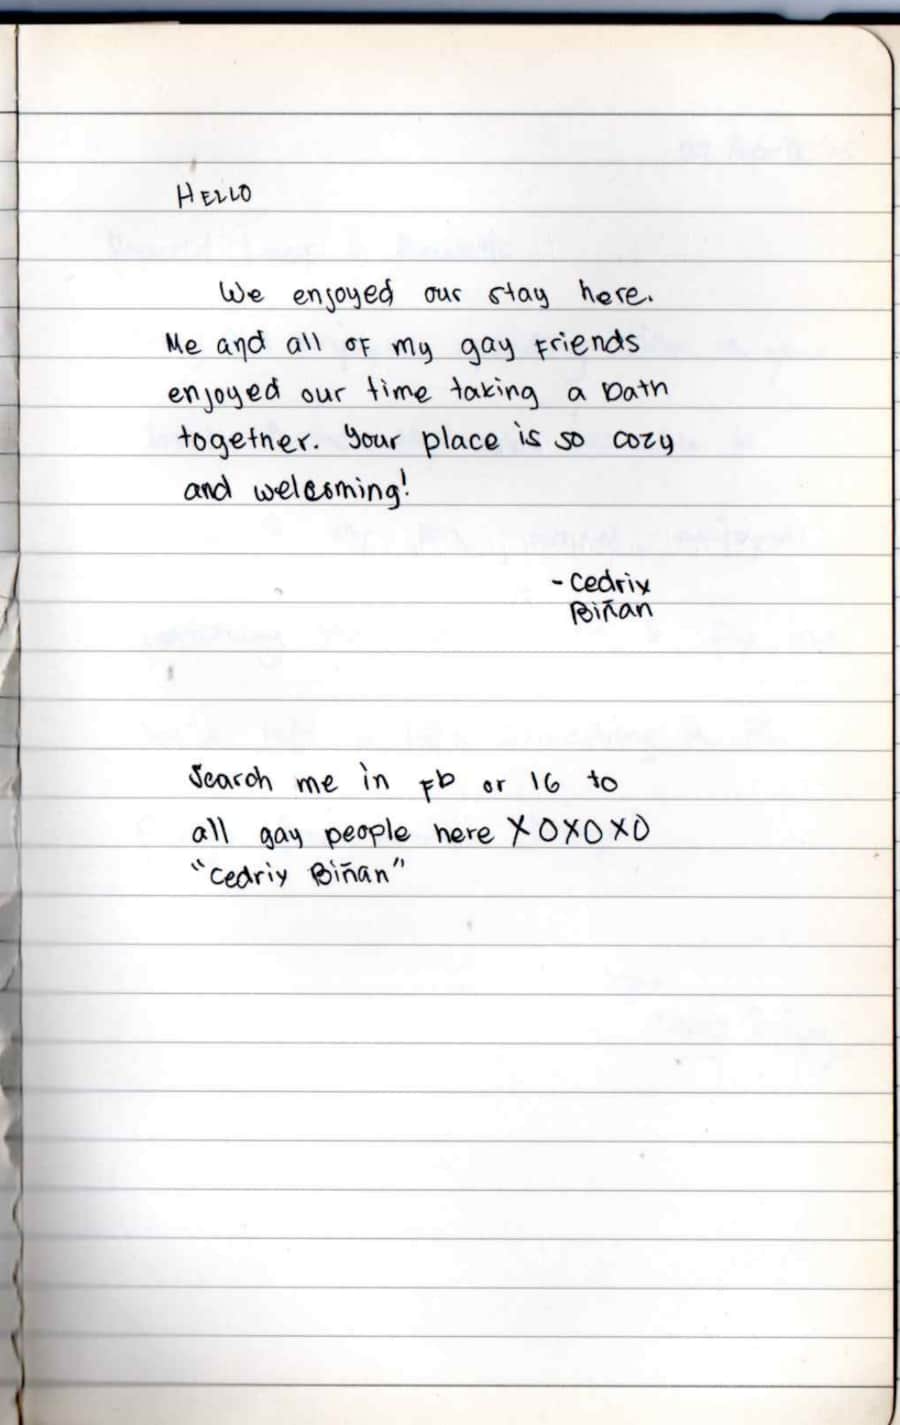 HELLO
We enjoyed our stay here.
Me and all of my gay friends
enjoyed our time taking a bath
together. Your place is so cozy
and welcoming!
- Cedrix
Biñan
Search me in Fb or IG to
all gay people here XOXOXO
"Cedrix Biñan"